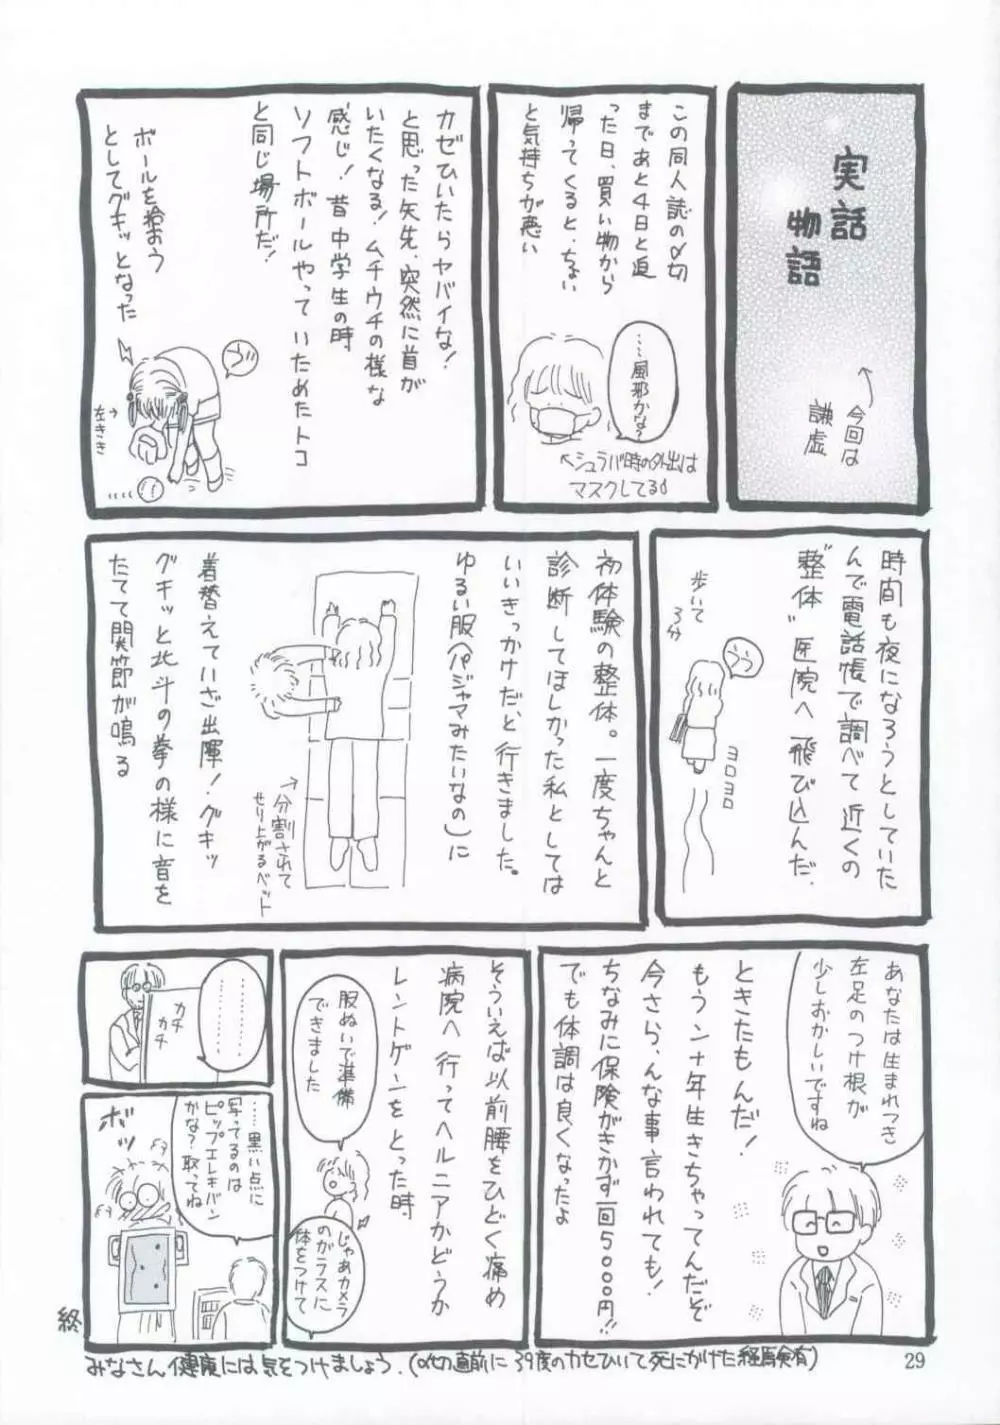 実話
物語
↑今回は
謙虚
この同人誌の〆切
まであと4日と迫
った日、買い物から
帰ってくると、ちょい
と気持ちが悪い
……風邪かな?
↑シュラバ時の外出は
マスクしてるo
カゼひいたらヤバイな!
と思った矢先、突然に首が
いたくなる!ムチウチの様な
感じ!昔中学生の時
ソフトボールやっていためたトコ
と同じ場所だ!
ボールを拾おう
としてグキッとなった
うっ
左きき→
時間も夜になろうとしていた
んで電話帳で調べて近くの
“整体”医院へ飛び込んだ.
歩いて
3分
うう
ヨロヨロ
初体験の整体。一度ちゃんと
診断してほしかった私としては
いいきっかけだ、と行きました。
ゆるい服(パジャマみたいなの)に
→分割されて
せり上がるベット
着替えていざ出陣!グキッ
グキッと北斗の拳の様に音を
たてて関節が鳴る
あなたは生まれつき
左足のつけ根が
少しおかしいですね
ときたもんだ!
もうン十年生きちゃってんだぞ
今さら、んな事言われても!
ちなみに保険がきかず一回5000円!!
でも体調は良くなったよ
そういえば以前腰をひどく痛め
病院へ行ってヘルニアかどうか
レントゲンをとった時
服ぬいで準備
できました
じゃあカメラ
のガラスに
体をつけて
…………
…………
カチ
カチ
……黒い点に
写ってるのは
ピップエレキバン
かな?取ってね
ボッ
終
みなさん健康には気をつけましょう.(〆切直前に39度のカゼひいて死にかけた経験有)
29